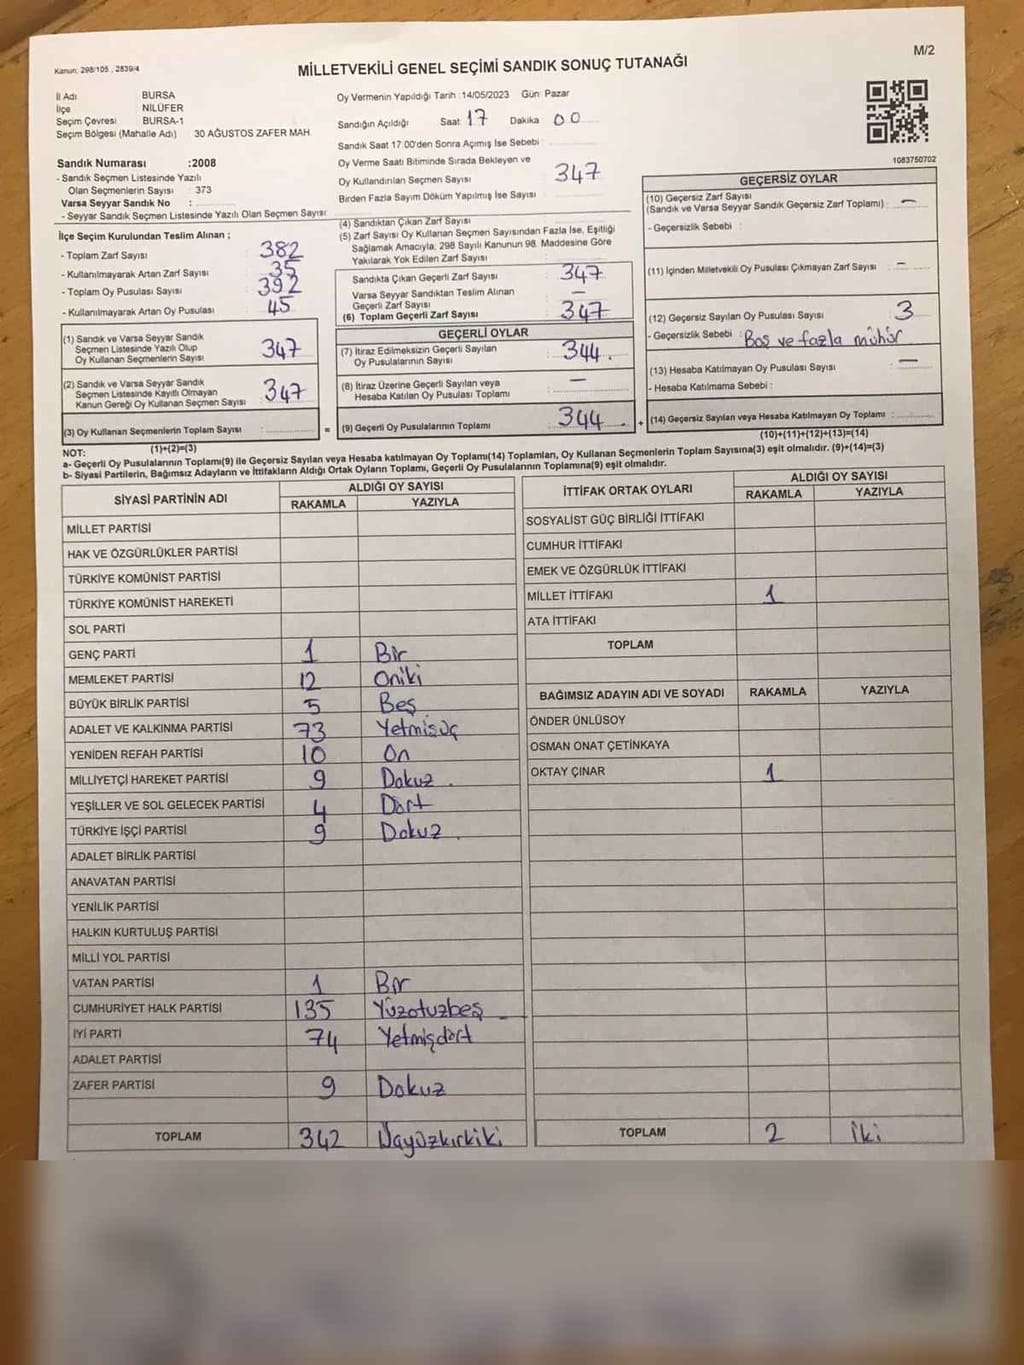 M/2
Kanun: 298/105 , 2839/4
MİLLETVEKİLİ GENEL SEÇİMİ SANDIK SONUÇ TUTANAĞI
İl Adı BURSA
İlçe NİLÜFER
Seçim Çevresi BURSA-1
Seçim Bölgesi (Mahalle Adı) 30 AĞUSTOS ZAFER MAH.
Sandık Numarası :2008
- Sandık Seçmen Listesinde Yazılı
Olan Seçmenlerin Sayısı : 373
Varsa Seyyar Sandık No :
- Seyyar Sandık Seçmen Listesinde Yazılı Olan Seçmen Sayısı
İlçe Seçim Kurulundan Teslim Alınan ;
- Toplam Zarf Sayısı : 382
- Kullanılmayarak Artan Zarf Sayısı : 35
- Toplam Oy Pusulası Sayısı : 392
- Kullanılmayarak Artan Oy Pusulası : 45
(1) Sandık ve Varsa Seyyar Sandık
Seçmen Listesinde Yazılı Olup
Oy Kullanan Seçmenlerin Sayısı : 347
(2) Sandık ve Varsa Seyyar Sandık
Seçmen Listesinde Kayıtlı Olmayan
Kanun Gereği Oy Kullanan Seçmen Sayısı : 347
(3) Oy Kullanan Seçmenlerin Toplam Sayısı :
(1)+(2)=(3)
Oy Vermenin Yapıldığı Tarih :14/05/2023 Gün: Pazar
Sandığın Açıldığı Saat 17 Dakika 00
Sandık Saat 17:00'den Sonra Açımış İse Sebebi
Oy Verme Saati Bitiminde Sırada Bekleyen ve
Oy Kullandırılan Seçmen Sayısı : 347
Birden Fazla Sayım Döküm Yapılmış İse Sayısı :
(4) Sandıktan Çıkan Zarf Sayısı :
(5) Zarf Sayısı Oy Kullanan Seçmen Sayısından Fazla İse, Eşitliği
Sağlamak Amacıyla, 298 Sayılı Kanunun 98. Maddesine Göre
Yakılarak Yok Edilen Zarf Sayısı :
Sandıkta Çıkan Geçerli Zarf Sayısı : 347
Varsa Seyyar Sandıktan Teslim Alınan
Geçerli Zarf Sayısı : —
(6) Toplam Geçerli Zarf Sayısı : 347
GEÇERLİ OYLAR
(7) İtiraz Edilmeksizin Geçerli Sayılan
Oy Pusulalarının Sayısı : 344.
(8) İtiraz Üzerine Geçerli Sayılan veya
Hesaba Katılan Oy Pusulası Toplamı : —
= (9) Geçerli Oy Pusulalarının Toplamı : 344 . +
1083750702
GEÇERSİZ OYLAR
(10) Geçersiz Zarf Sayısı
(Sandık ve Varsa Seyyar Sandık Geçersiz Zarf Toplamı) : —
- Geçersizlik Sebebi :
(11) İçinden Milletvekili Oy Pusulası Çıkmayan Zarf Sayısı : —
(12) Geçersiz Sayılan Oy Pusulası Sayısı : 3
- Geçersizlik Sebebi : Boş ve fazla mühür
(13) Hesaba Katılmayan Oy Pusulası Sayısı : —
- Hesaba Katılmama Sebebi :
(14) Geçersiz Sayılan veya Hesaba Katılmayan Oy Toplamı :
(10)+(11)+(12)+(13)=(14)
NOT:
a- Geçerli Oy Pusulalarının Toplamı(9) ile Geçersiz Sayılan veya Hesaba katılmayan Oy Toplamı(14) Toplamları, Oy Kullanan Seçmenlerin Toplam Sayısına(3) eşit olmalıdır. (9)+(14)=(3)
b- Siyasi Partilerin, Bağımsız Adayların ve İttifakların Aldığı Ortak Oyların Toplamı, Geçerli Oy Pusulalarının Toplamına(9) eşit olmalıdır.
SİYASİ PARTİNİN ADI ALDIĞI OY SAYISI
RAKAMLA YAZIYLA
MİLLET PARTİSİ
HAK VE ÖZGÜRLÜKLER PARTİSİ
TÜRKİYE KOMÜNİST PARTİSİ
TÜRKİYE KOMÜNİST HAREKETİ
SOL PARTİ
GENÇ PARTİ 1 Bir
MEMLEKET PARTİSİ 12 Oniki
BÜYÜK BİRLİK PARTİSİ 5 Beş
ADALET VE KALKINMA PARTİSİ 73 Yetmişüç
YENİDEN REFAH PARTİSİ 10 On
MİLLİYETÇİ HAREKET PARTİSİ 9 Dokuz .
YEŞİLLER VE SOL GELECEK PARTİSİ 4 Dört
TÜRKİYE İŞÇİ PARTİSİ 9 Dokuz .
ADALET BİRLİK PARTİSİ
ANAVATAN PARTİSİ
YENİLİK PARTİSİ
HALKIN KURTULUŞ PARTİSİ
MİLLİ YOL PARTİSİ
VATAN PARTİSİ 1 Bir
CUMHURİYET HALK PARTİSİ 135 Yüzotuzbeş
İYİ PARTİ 74 Yetmişdört
ADALET PARTİSİ
ZAFER PARTİSİ 9 Dokuz
TOPLAM 342 Üçyüzkırkiki
İTTİFAK ORTAK OYLARI ALDIĞI OY SAYISI
RAKAMLA YAZIYLA
SOSYALİST GÜÇ BİRLİĞİ İTTİFAKI
CUMHUR İTTİFAKI
EMEK VE ÖZGÜRLÜK İTTİFAKI
MİLLET İTTİFAKI 1
ATA İTTİFAKI
TOPLAM
BAĞIMSIZ ADAYIN ADI VE SOYADI RAKAMLA YAZIYLA
ÖNDER ÜNLÜSOY
OSMAN ONAT ÇETİNKAYA
OKTAY ÇINAR 1
TOPLAM 2 İki